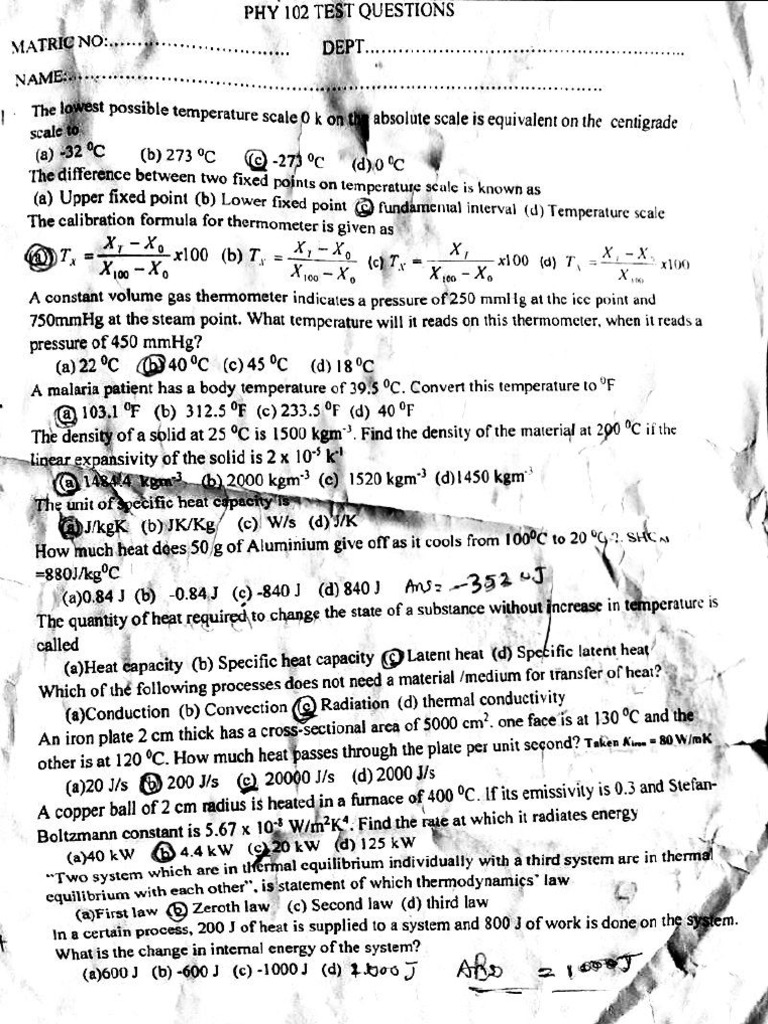 PHY 102 TEST QUESTIONS
MATRIC NO:................................ DEPT......................................................
NAME:.......................................................................................
1 The lowest possible temperature scale 0 k on the absolute scale is equivalent on the centigrade
scale to
(a) -32 ⁰C (b) 273 ⁰C (c) -273 ⁰C (d) 0 ⁰C
The difference between two fixed points on temperature scale is known as
(a) Upper fixed point (b) Lower fixed point (c) fundamental interval (d) Temperature scale
The calibration formula for thermometer is given as
(a) Tₓ = (X_T − X₀)/(X₁₀₀ − X₀) x100 (b) Tₓ = (X_T − X₀)/(X₁₀₀ − X₀) (c) Tₓ = X_T/(X₁₀₀ − X₀) x100 (d) Tₓ = (X_T − X₀)/X₁₀₀ x100
A constant volume gas thermometer indicates a pressure of 250 mmHg at the ice point and
750mmHg at the steam point. What temperature will it reads on this thermometer, when it reads a
pressure of 450 mmHg?
(a) 22 ⁰C (b) 40 ⁰C (c) 45 ⁰C (d) 18 ⁰C
A malaria patient has a body temperature of 39.5 ⁰C. Convert this temperature to ⁰F
(a) 103.1 ⁰F (b) 312.5 ⁰F (c) 233.5 ⁰F (d) 40 ⁰F
The density of a solid at 25 ⁰C is 1500 kgm⁻³. Find the density of the material at 200 ⁰C if the
linear expansivity of the solid is 2 x 10⁻⁵ k⁻¹
(a) 1484.4 kgm⁻³ (b) 2000 kgm⁻³ (c) 1520 kgm⁻³ (d)1450 kgm⁻³
The unit of specific heat capacity is
(a) J/kgK (b) JK/Kg (c) W/s (d) J/K
How much heat does 50 g of Aluminium give off as it cools from 100⁰C to 20 ⁰C ?. SHC
=880J/kg⁰C
(a)0.84 J (b) -0.84 J (c) -840 J (d) 840 J Ans= -3520J
The quantity of heat required to change the state of a substance without increase in temperature is
called
(a)Heat capacity (b) Specific heat capacity (c) Latent heat (d) Specific latent heat
Which of the following processes does not need a material /medium for transfer of heat?
(a)Conduction (b) Convection (c) Radiation (d) thermal conductivity
An iron plate 2 cm thick has a cross-sectional area of 5000 cm². one face is at 130 ⁰C and the
other is at 120 ⁰C. How much heat passes through the plate per unit second? Taken K = 80 W/mK
(a)20 J/s (b) 200 J/s (c) 20000 J/s (d) 2000 J/s
A copper ball of 2 cm radius is heated in a furnace of 400 ⁰C. If its emissivity is 0.3 and Stefan-
Boltzmann constant is 5.67 x 10⁻⁸ W/m²K⁴. Find the rate at which it radiates energy
(a)40 kW (b) 4.4 kW (c) 20 kW (d) 125 kW
"Two system which are in thermal equilibrium individually with a third system are in thermal
equilibrium with each other". is statement of which thermodynamics' law
(a)First law (b) Zeroth law (c) Second law (d) third law
In a certain process, 200 J of heat is supplied to a system and 800 J of work is done on the system.
What is the change in internal energy of the system?
(a)600 J (b) -600 J (c) -1000 J (d) = 1000J